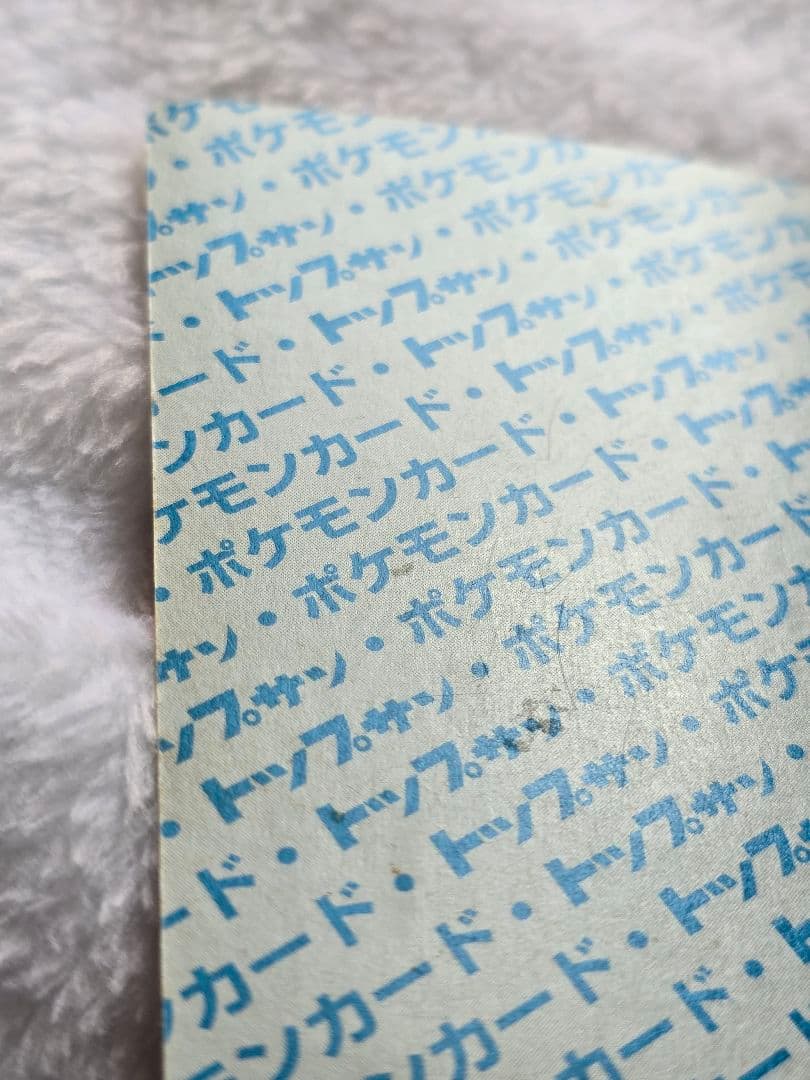 ケモ
ン・ポケモン
プサン・ポケモンカ
トップサン・ポケモンカ
・トップサン・ポケモンカ
ード・トップサン・ポケモンカ
ンカード・トップサン・ポケモン
ケモンカード・トップサン・ポケ
・ポケモンカード・トップサン・
サン・ポケモンカード・トップサン
ップサン・ポケモンカード・ト
・トップサン・ポケモンカード
ード・トップサン・ポケモンカ
カード・トップサン・ポケモ
モンカード・トップサン・
カード・トップ
カード・ト